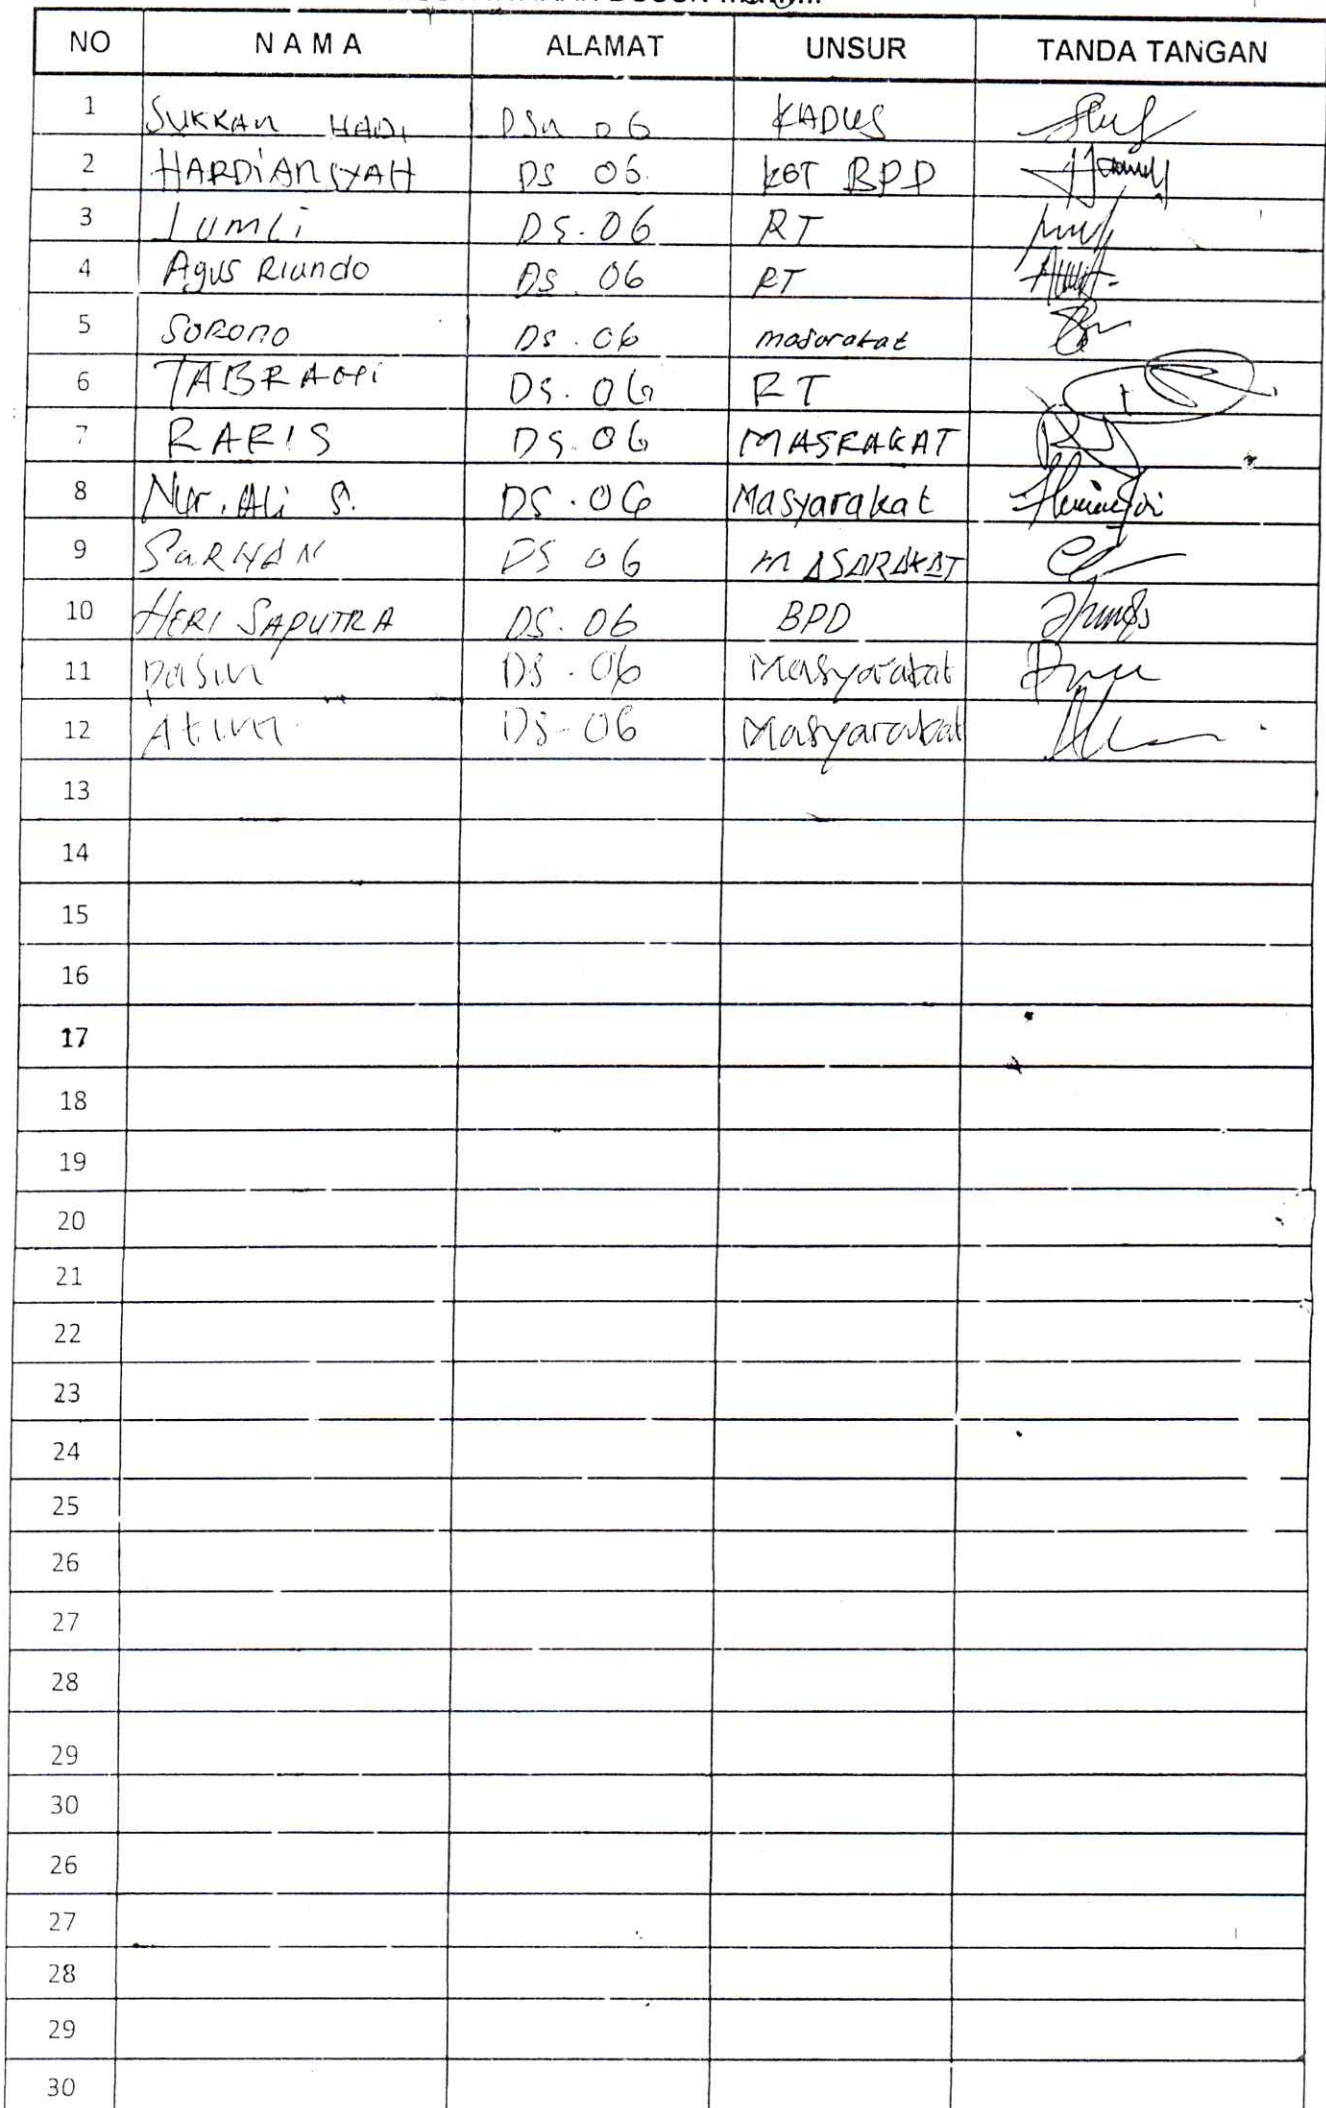 DUSUN
NO NAMA ALAMAT UNSUR TANDA TANGAN
1 SUKKAN HADI DSN 06 KADUS
2 HARDiANSYAH DS 06. KET BPD
3 Jumli DS.06 RT
4 Agus Riundo DS. 06 RT
5 SORONO DS. 06 masarakat
6 DS. 06 RT
7 RARIS DS. 06 MASRAKAT
8 Nur. Ali S. DS. 06 Masyarakat
9 SARYAN DS 06 MASARAKAT
10 HERI SAPUTRA DS. 06 BPD
11 pasin DS. 06 Masyarakat
12 Atim DS-06 Masyarakat
13
14
15
16
17
18
19
20
21
22
23
24
25
26
27
28
29
30
26
27
28
29
30